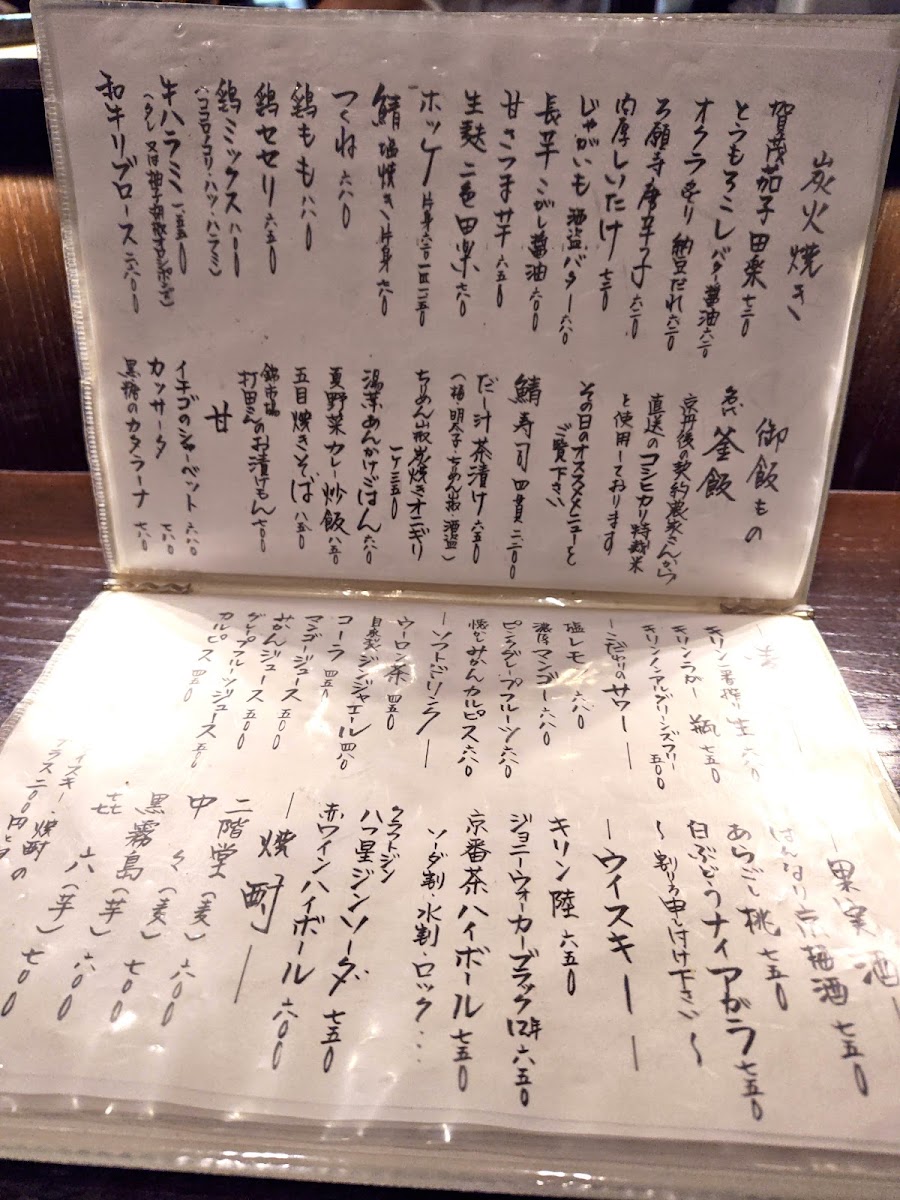 炭火焼き
賀茂茄子田楽 七三〇
とうもろこしバター醤油 六二〇
オクラ炙り 納豆だれ 六二〇
万願寺唐辛子 六二〇
肉厚しいたけ 七三〇
じゃがいも 酒盗バター 六八〇
長芋 こがし醤油 六〇〇
甘さつま芋 六五〇
生麩 二色田楽 七六〇
ホッケ 片身 六二〇 一匹 一二五〇
鯖 塩焼き 片身
つくね 六八〇
鶏もも 八八〇
鶏セセリ 六五〇
鶏ミックス 八〇〇
(ココロノコリ・ハツ・ハラミ)
牛ハラミ 一二五〇
(タレ 又は柚子胡椒オロシポン酢)
和牛リブロース 二六〇〇
御飯もの
釜飯
京丹後の契約農家さんから
直送のコシヒカリ特栽米
を使用しております
その日のオススメメニューを
ご覧下さい
鯖寿司 四貫 二二〇〇
だし汁茶漬け 六五〇
(梅・明太子・ちりめん山椒・酒盗)
ちりめん山椒炭焼きオニギリ
一ケ 三五〇
湯葉あんかけごはん 六八〇
夏野菜カレー炒飯 八五〇
五目焼きそば 八五〇
錦市場
打田さんのお漬けもん 七〇〇
甘
イチゴのシャーベット 六八〇
カッサータ 七八〇
黒糖のカタラーナ 七八〇
キリン一番搾り 生 六八〇
キリンラガー 瓶 七五〇
キリンノンアルグリーンズフリー 五〇〇
―こだわりのサワー―
塩レモン 六八〇
濃厚マンゴー 六八〇
ピンクグレープフルーツ 六八〇
懐かしみかんカルピス 六八〇
―ソフトドリンク―
ウーロン茶 四五〇
自家製ジンジャエール 四八〇
コーラ 四五〇
マンゴージュース 五〇〇
みかんジュース 五〇〇
グレープフルーツジュース 五〇〇
カルピス 四五〇
―果実酒―
はんなり京梅酒 七五〇
あらごし桃 七五〇
白ぶどうナイアガラ 七五〇
〜割り方申し付け下さい〜
―ウイスキー―
キリン陸 六五〇
ジョニーウォーカーブラック12年 六五〇
京番茶ハイボール 七五〇
ソーダ割・水割・ロック…
クラフトジン
八つ星ジンソーダ 七五〇
赤ワインハイボール 六〇〇
―焼酎―
二階堂(麦) 六〇〇
中々(麦) 七〇〇
黒霧島(芋) 六〇〇
㐂六(芋) 七〇〇
イスキー・焼酎
プラス二〇〇円で